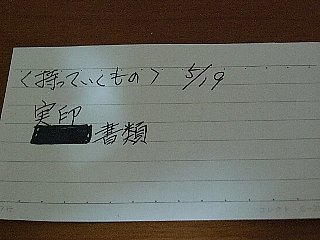 <持っていくもの> 5/19
実印
書類